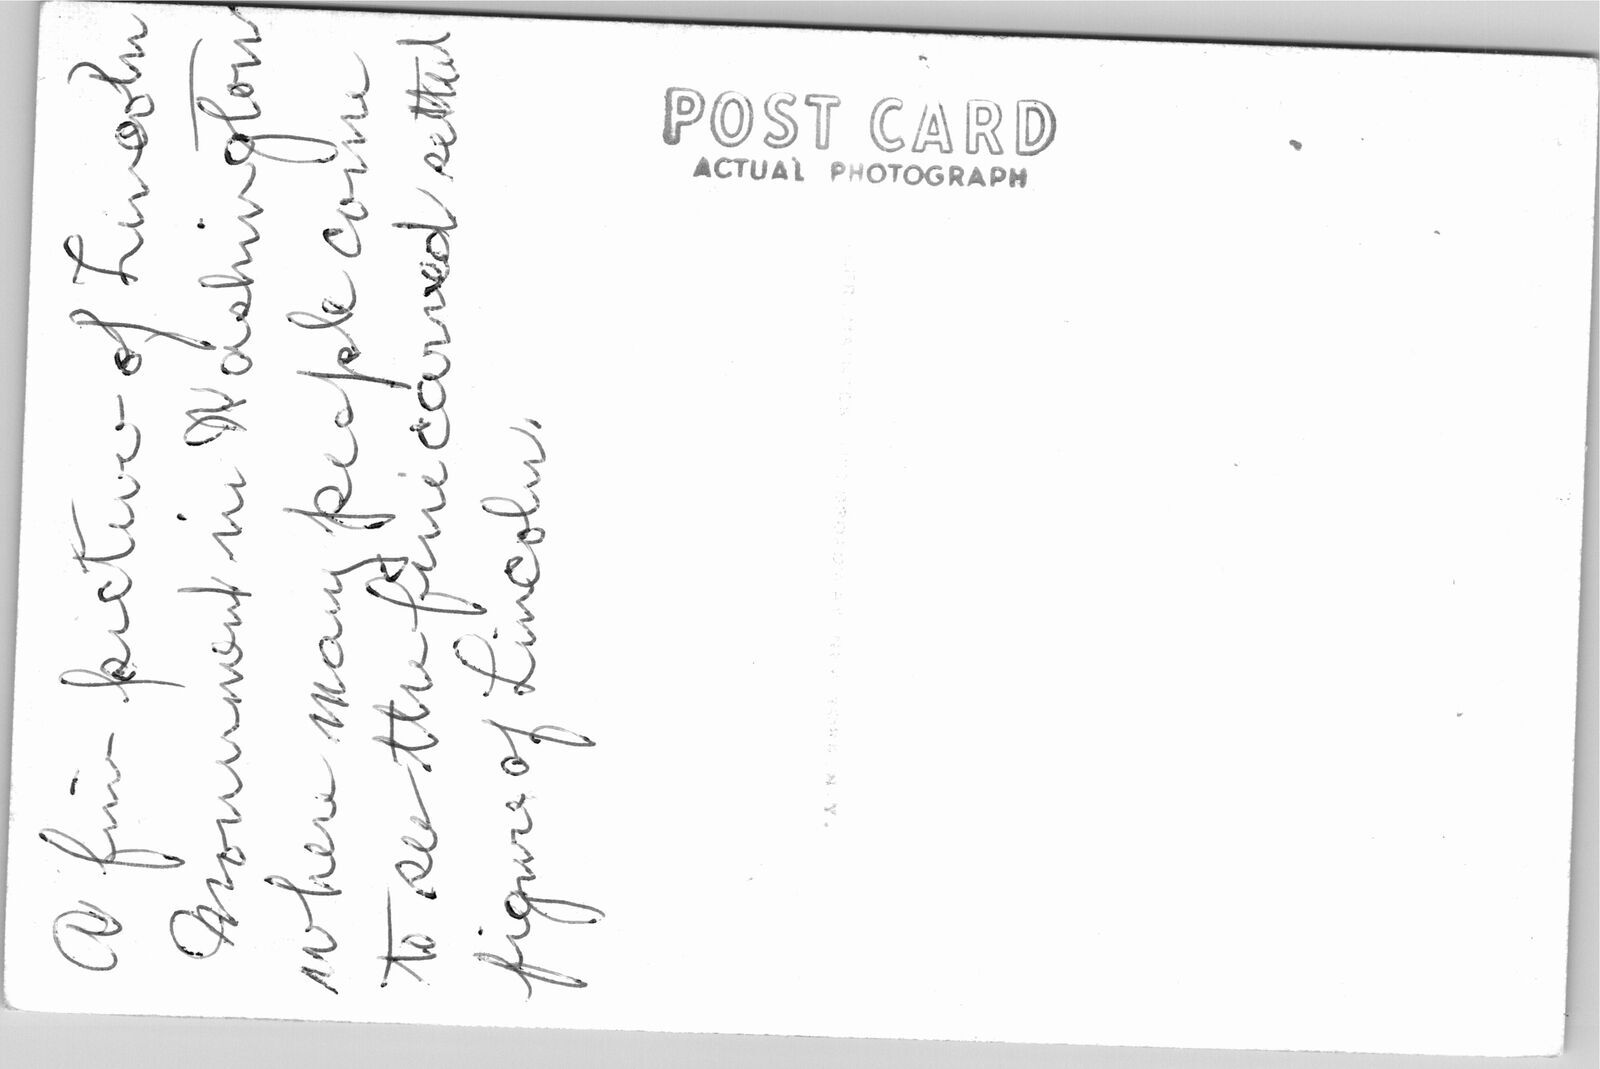 A fine picture of Lincoln
Monument in Washington
where many people come
to see the fine carved
figure of Lincoln.
POST CARD
ACTUAL PHOTOGRAPH